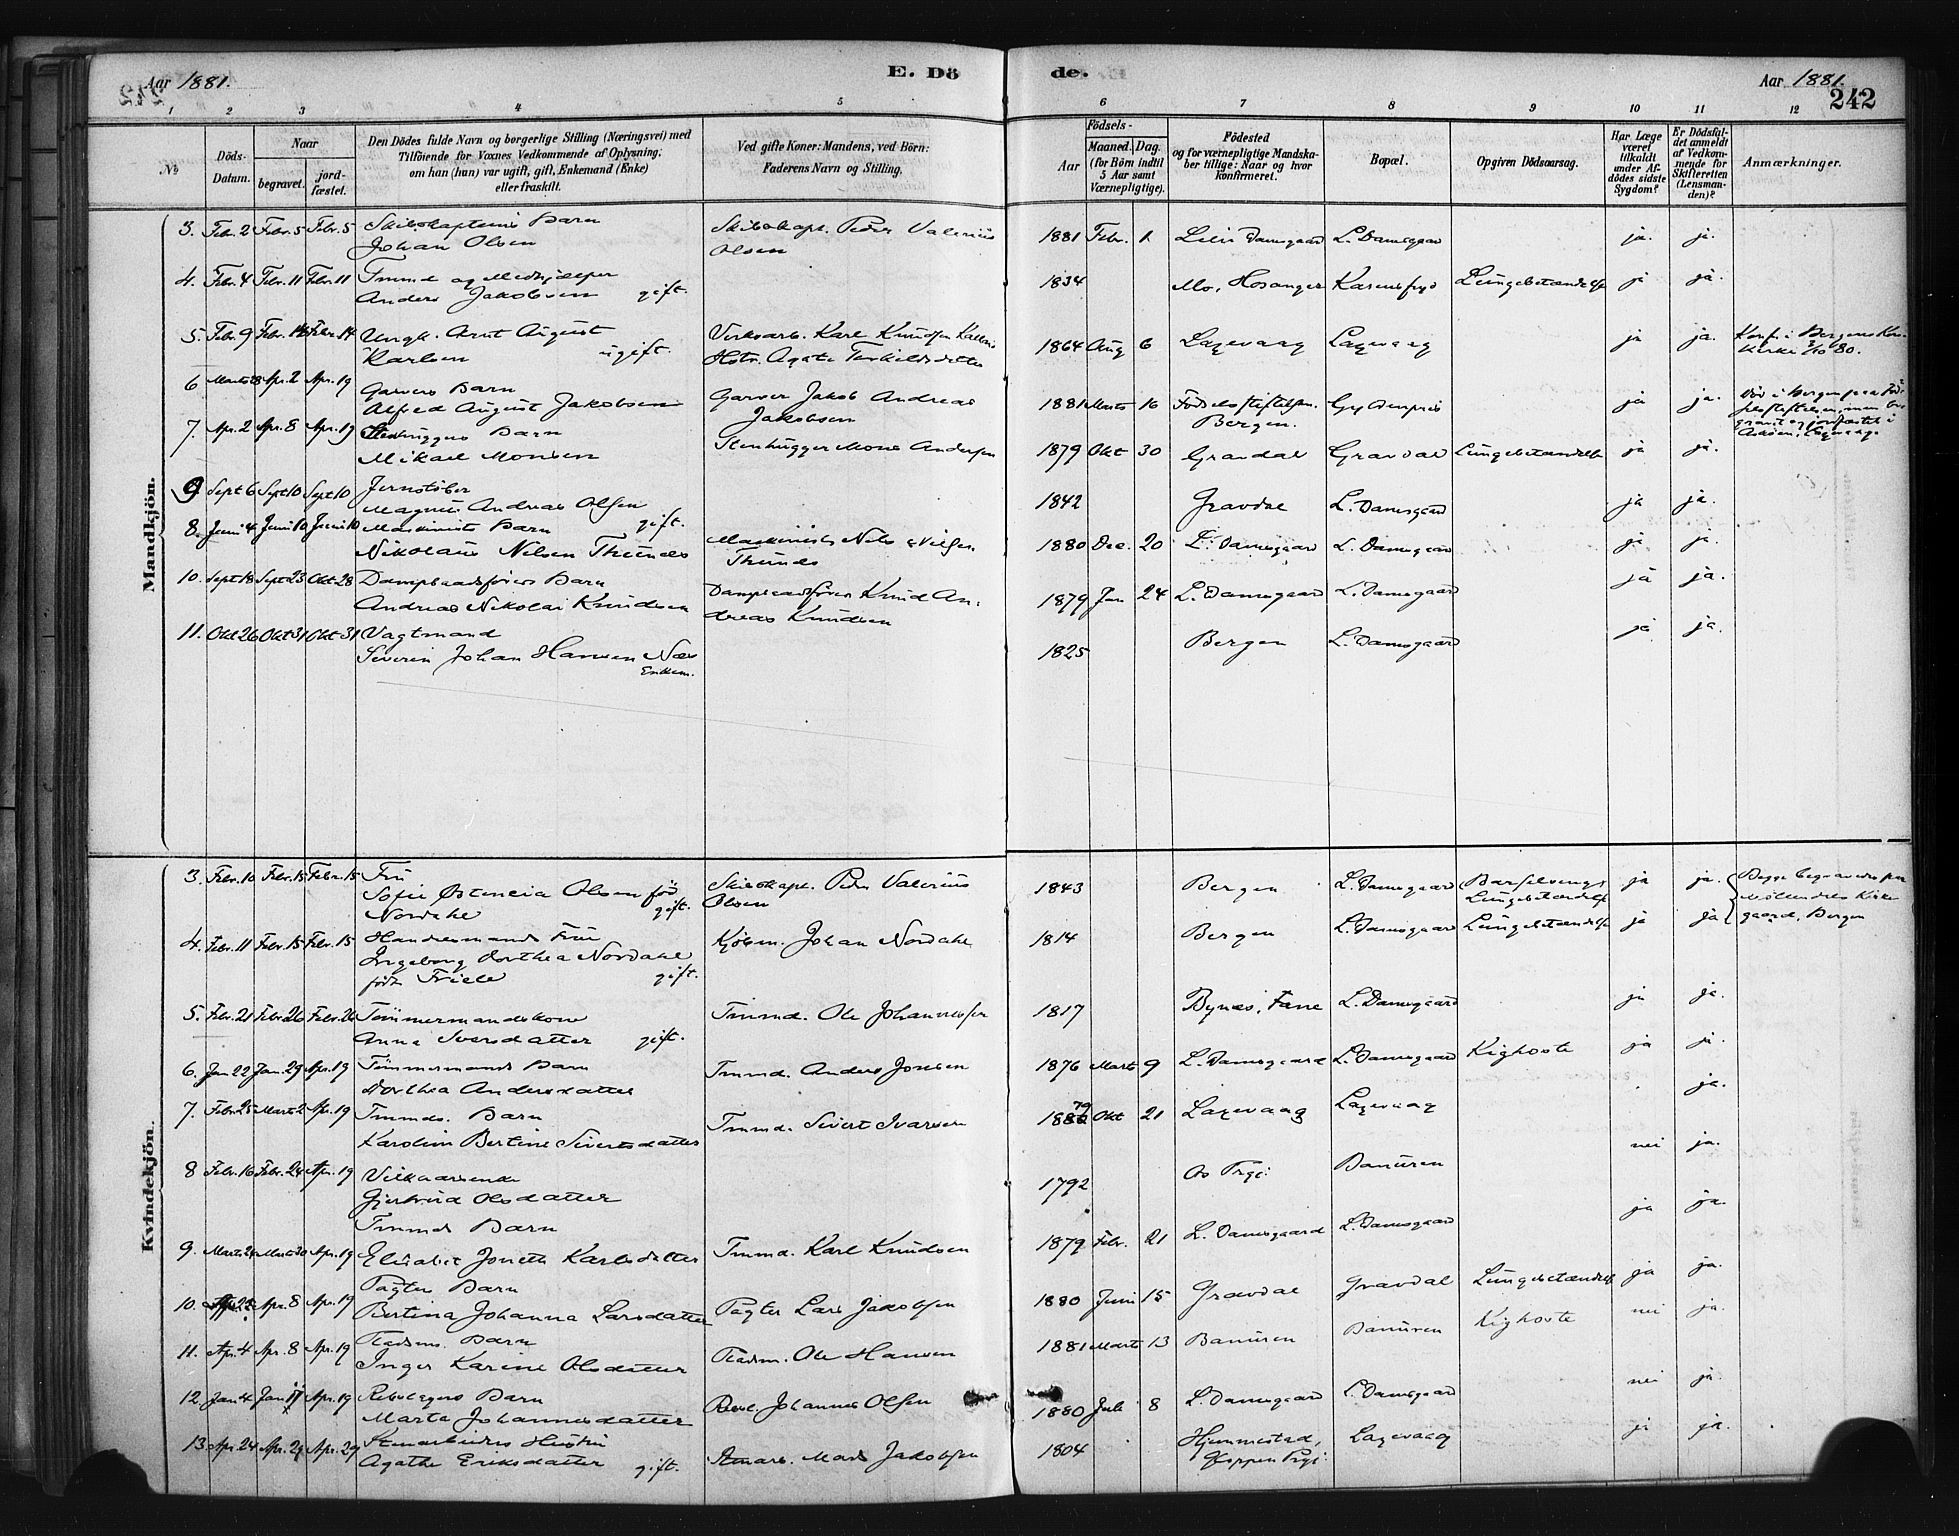 Aar 1881.
E. Dö
de.
Aar 1881.
242
1 2 3 4 5 6 7 8 9 10 11 12
No
Döds-Datum.
Naar
begravet.
jord-fæstet.
Den Dödes fulde Navn og borgerlige Stilling (Næringsvei) med
Tilföiende for Voxnes Vedkommende af Oplysning,
om han (hun) var ugift, gift, Enkemand (Enke)
eller fraskilt.
Ved gifte Koner: Mandens, ved Börn:
Faderens Navn og Stilling.
Födsels-
Aar
Maaned. Dag.
(for Börn indtil
5 Aar samt
Værnepligtige).
Födested
og for værnepligtige Mandska-
ber tillige: Naar og hvor
konfirmeret.
Bopæl.
Opgiven Dödsaarsag.
Har Læge
været
tilkaldt
under Af-
dödes sidste
Sygdom?
Er Dödsfal-
det anmeldt
af Vedkom-
mende for
Skifteretten
(Lensman-
den)?
Anmærkninger.
Mandkjön.
3. Febr. 2 Febr. 5 Febr. 5 Skibskapteins Barn Skibskapt. Peder Valerius 1881 Febr. 1 Lille Damsgaard L. Damsgaard ja. ja.
Johan Olsen Olsen
4. Febr. 4 Febr. 11 Febr. 11 Tmmd og Medhjælper 1834 Mo, Hosanger Karensfryd Lungebetændelse ja ja.
Anders Jakobsen gift.
5. Febr. 9 Febr. 14 Febr. 14 Ungk. Arnt August Verksarb. Karl Knudsen 1864 Aug 6 Laxevaag Laxevaag ja ja. Konf. i Bergens
Karlsen ugift. Hstr. Agate Terkildsdatter Kirke 80.
6 Marts 28 Apr. 2 Apr. 19 Garvers Barn Garver Jakob Andreas 1881 Marts 16 Födselsstiftelsen. ja ja. Död i Bergen paa Föd-
Alfred August Jakobsen Jakobsen Bergen. selsstiftelsen, men be-
gravet og jordfæstet i
7. Apr. 2 Apr. 8 Apr. 19 Stenhuggers Barn Stenhugger Mons Andersen 1879 Okt 30 Gravdal Gravdal Lungebetændelse ja ja.
Mikael Monsen
9 Sept 6 Sept 10 Sept 10 Jernstöber 1842 Gravdal L. Damsgaard ja ja.
Magnus Andreas Olsen gift.
8. Juni 4 Juni 10 Juni 10 Maskinists Barn Maskinist Nels Nilsen 1880 Dec. 20 L. Damsgaard L. Damsgaard ja ja.
Nikolaus Nilsen Thunes Thunes
10. Sept 18 Sept 23 Okt 28 Dampbaadsförers Barn Dampbaadsförer Knud An- 1879 Jan 24 L. Damsgaard L. Damsgaard ja ja.
Andreas Nikolai Knudsen dreas Knudsen
11. Okt 26 Okt 31 Okt 31 Vagtmand 1825 Bergen L. Damsgaard ja ja.
Severin Johan Hansen Næs
Enkem.
Kvindekjön.
3. Febr. 10 Febr. 15 Febr. 15 Fru Skibskapt. Peder Valerius 1843 Bergen L. Damsgaard Barselseng, ja ja. Begge begravede paa
Sofie Østencia Olsen föd Olsen Lungebetændelse Möllendals Kirke
Nordahl gift. gaard, Bergen
4. Febr. 11 Febr. 15 Febr. 15 Handelsmands Fru Kjöbm. Johan Nordahl 1814 Bergen L. Damsgaard Lungebetændelse ja ja
Ingeborg Dorthea Nordahl
födt Friele gift.
5. Febr. 21 Febr. 26 Febr. 26 Tömmermandskone Tmmd. Ole Johannessen 1817 Bynes, Fane L. Damsgaard ja ja.
Anna Iversdatter gift.
6. Jan 22 Jan. 29 Apr. 19 Tömmermands Barn Tmmd. Anders Jonsen 1876 Marts 9 L. Damsgaard L. Damsgaard Kighoste ja ja.
Dorthea Andersdatter
7. Febr. 25 Marts 2 Apr. 19 Tmmds. Barn Tmmd. Sivert Ivarsen 1879 Okt 21 Laxevaag Laxevaag ja.
Karoline Bertine Sivertsdatter
8 Febr. 16 Febr. 24 Apr. 19 Vilkaarsenke 1792 Os Prgj. Banuren nei ja.
Gjertrud Olsdatter
9. Marts 24 Marts 30 Apr. 19 Tmmds Barn Tmmd. Karl Knudsen 1879 Febr. 21 L. Damsgaard L. Damsgaard ja ja.
Elisabet Joneth Karlsdatter
10. Apr. 8 Apr. 19 Pagters Barn Pagter Lars Jakobsen 1880 Juni 15 Gravdal Gravdal Lungebetændelse ja ja.
Bertina Johanna Larsdatter
11. Apr. 4 Apr. 8 Apr. 19 Barn Ole Hansen 1881 Marts 13 Banuren Banuren Kighoste nei ja.
Inger Karine Olsdatter
12. Jan 4 Jan 17 Apr. 19 Rebslagers Barn Johannes Olsen 1880 Juli 8 L. Damsgaard L. Damsgaard nei ja.
Marta Johannesdatter
13. Apr. 24 Apr. 29 Apr. 29 Stenarbeiders Hustru Stenarb. Mads Jakobsen 1804 Hjemmestad, Laxevaag ja ja.
Agathe Eriksdatter gift. Gloppen Prgj.